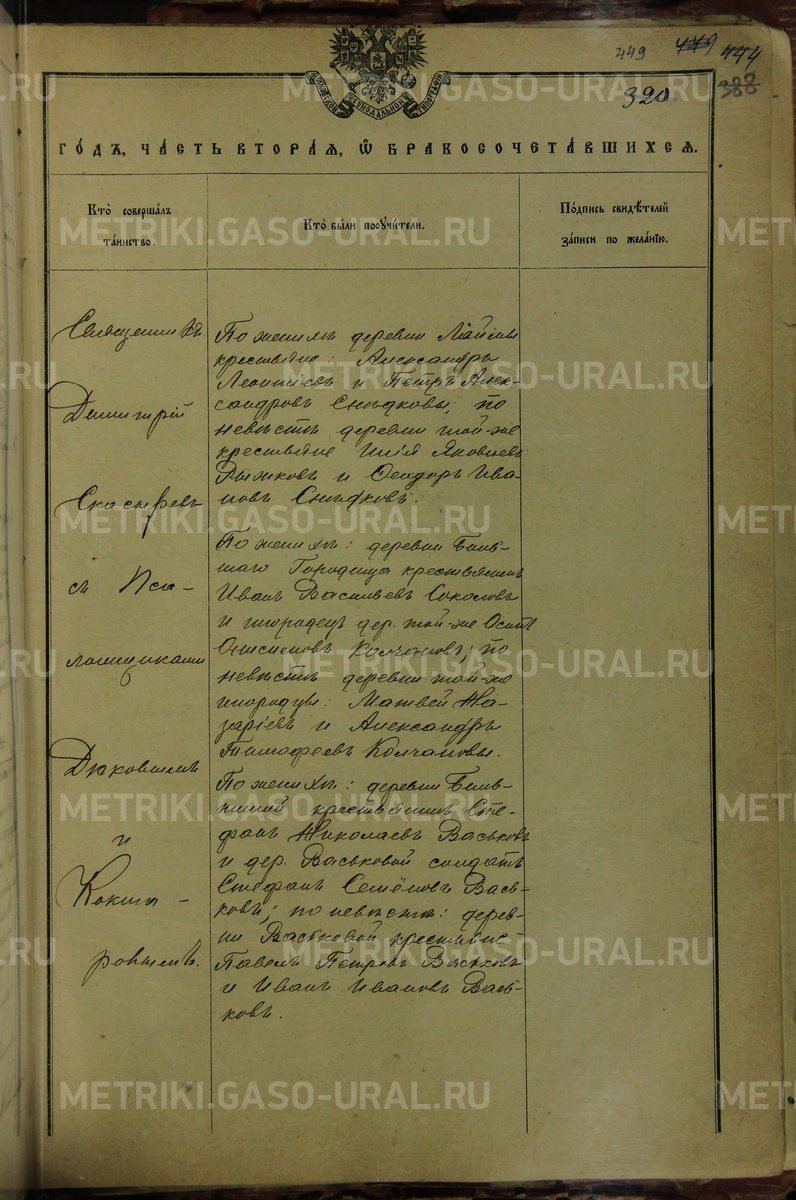 449 449 444
320 388
МОСКОВСКОЙ СѴНОДАЛЬНОЙ ТИПОГРАФІИ
ГО́ДЪ, ЧА́СТЬ ВТОРА́Я, Ѽ БРАКОСОЧЕТА́ВШИХСЯ.
Кто̀ соверша́лъ
та́инство.
Кто̀ бы́ли поручи́тели.
По́дпись свидѣ́телей
за́писи по жела́нію.
Священникъ
Димитрій
Скосыревъ
съ Пса-
ломщиками
Дюковымъ
и
ровымъ.
По женихѣ деревни
крестьяне: Александръ
Леонтіевъ и Петръ Алек-
сандровъ Снѣдковы; по
невѣстѣ деревни той-же
крестьяне Илія Яковлевъ
Рыжковъ и Ѳеодоръ Ива-
новъ Снѣдковъ.
По женихѣ: деревни Боль-
шаго Городища крестьянинъ
Иванъ Васильевъ Соколовъ
и инородецъ дер. той-же Осипъ
Онисимовъ Колчановъ; по
невѣстѣ деревни той-же
инородцы: Матвей На-
заріевъ и Александръ
Тимофеевъ Колчановы.
По женихѣ: деревни
крестьянинъ Сте-
фанъ Николаевъ Васьковъ
и дер. Васьковой солдатъ
Стефанъ Семёновъ Вась-
ковъ; по невѣстѣ: дерев-
ни Васьковой крестьяне
Павелъ Петровъ Васьковъ
и Иванъ Ивановъ Вась-
ковъ.
METRIKI.GASO-URAL.RU